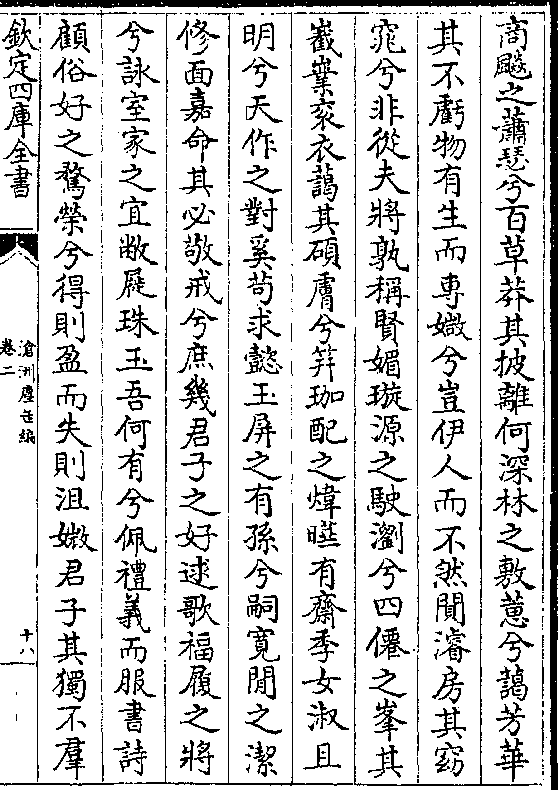 商飈之蕭瑟兮百草莽其披離何深林之敷蕙兮藹芳華
其不虧物有生而專媺兮豈伊人而不然閒濬房其窈
窕兮非從夫將孰稱賢媚璇源之駛瀏兮四僊之峯其
嶻嶪衮衣藹其碩膚兮笄珈配之煒曄有齋季女淑且
明兮天作之對奚苟求懿玉屏之有孫兮嗣寬閒之潔
修面嘉命其必敬戒兮庶幾君子之好逑歌福履之將
兮詠室家之宜敝屣珠玉吾何有兮佩禮義而服書詩
顧俗好之騖榮兮得則盈而失則沮媺君子其獨不羣
欽定四庫全書
滄洲塵缶編
卷二
十八